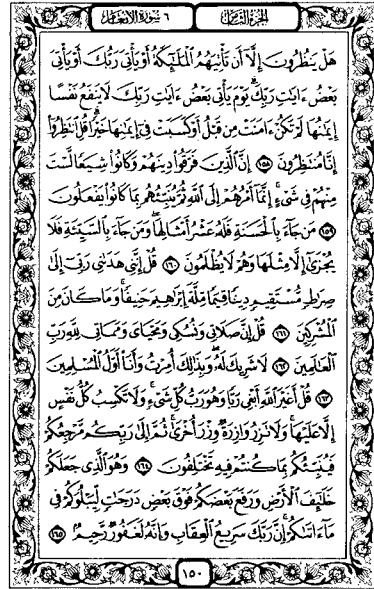 الجزء الثامن ٦ سورة الأنعام
هَلۡ يَنظُرُونَ إِلَّآ أَن تَأۡتِيَهُمُ ٱلۡمَلَٰٓئِكَةُ أَوۡ يَأۡتِيَ رَبُّكَ أَوۡ يَأۡتِيَ
بَعۡضُ ءَايَٰتِ رَبِّكَۗ يَوۡمَ يَأۡتِي بَعۡضُ ءَايَٰتِ رَبِّكَ لَا يَنفَعُ نَفۡسًا
إِيمَٰنُهَا لَمۡ تَكُنۡ ءَامَنَتۡ مِن قَبۡلُ أَوۡ كَسَبَتۡ فِيٓ إِيمَٰنِهَا خَيۡرٗاۗ قُلِ ٱنتَظِرُوٓاْ
إِنَّا مُنتَظِرُونَ ١٥٨ إِنَّ ٱلَّذِينَ فَرَّقُواْ دِينَهُمۡ وَكَانُواْ شِيَعٗا لَّسۡتَ
مِنۡهُمۡ فِي شَيۡءٍۚ إِنَّمَآ أَمۡرُهُمۡ إِلَى ٱللَّهِ ثُمَّ يُنَبِّئُهُم بِمَا كَانُواْ يَفۡعَلُونَ
١٥٩ مَن جَآءَ بِٱلۡحَسَنَةِ فَلَهُۥ عَشۡرُ أَمۡثَالِهَاۖ وَمَن جَآءَ بِٱلسَّيِّئَةِ فَلَا
يُجۡزَىٰٓ إِلَّا مِثۡلَهَا وَهُمۡ لَا يُظۡلَمُونَ ١٦٠ قُلۡ إِنَّنِي هَدَىٰنِي رَبِّيٓ إِلَىٰ
صِرَٰطٖ مُّسۡتَقِيمٖ دِينٗا قِيَمٗا مِّلَّةَ إِبۡرَٰهِيمَ حَنِيفٗاۚ وَمَا كَانَ مِنَ
ٱلۡمُشۡرِكِينَ ١٦١ قُلۡ إِنَّ صَلَاتِي وَنُسُكِي وَمَحۡيَايَ وَمَمَاتِي لِلَّهِ رَبِّ
ٱلۡعَٰلَمِينَ ١٦٢ لَا شَرِيكَ لَهُۥۖ وَبِذَٰلِكَ أُمِرۡتُ وَأَنَا۠ أَوَّلُ ٱلۡمُسۡلِمِينَ
١٦٣ قُلۡ أَغَيۡرَ ٱللَّهِ أَبۡغِي رَبّٗا وَهُوَ رَبُّ كُلِّ شَيۡءٖۚ وَلَا تَكۡسِبُ كُلُّ نَفۡسٍ
إِلَّا عَلَيۡهَاۚ وَلَا تَزِرُ وَازِرَةٞ وِزۡرَ أُخۡرَىٰۚ ثُمَّ إِلَىٰ رَبِّكُم مَّرۡجِعُكُمۡ
فَيُنَبِّئُكُم بِمَا كُنتُمۡ فِيهِ تَخۡتَلِفُونَ ١٦٤ وَهُوَ ٱلَّذِي جَعَلَكُمۡ
خَلَٰٓئِفَ ٱلۡأَرۡضِ وَرَفَعَ بَعۡضَكُمۡ فَوۡقَ بَعۡضٖ دَرَجَٰتٖ لِّيَبۡلُوَكُمۡ فِي
مَآ ءَاتَىٰكُمۡۗ إِنَّ رَبَّكَ سَرِيعُ ٱلۡعِقَابِ وَإِنَّهُۥ لَغَفُورٞ رَّحِيمُۢ ١٦٥
١٥٠